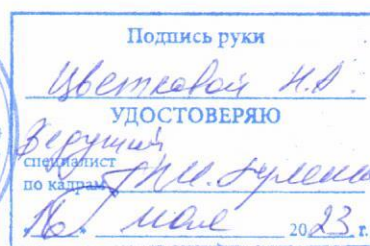 Подпись руки
Цветковой Н.А.
УДОСТОВЕРЯЮ
Ведущий
специалист
по кадрам
16. мая 2023 г.